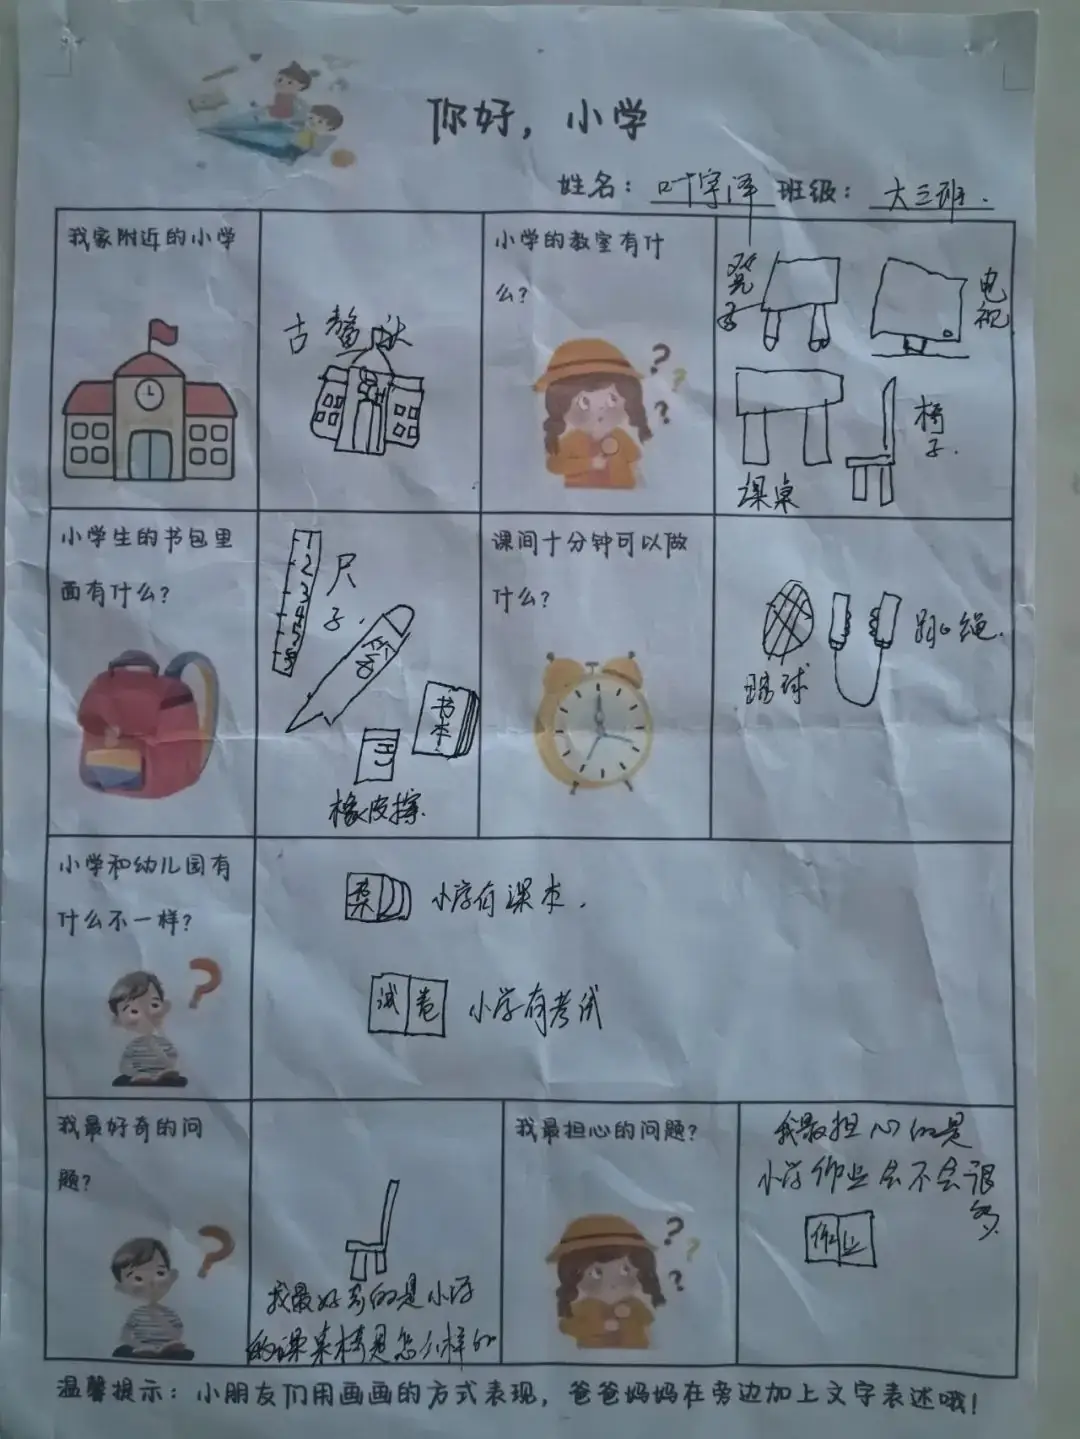 你好，小学
姓名：叶宇泽 班级：大三班.
我家附近的小学
古鳌
小学的教室有什
么？
凳子
电视
椅子.
课桌
小学生的书包里
面有什么？
1
2
3
4
5
尺子.
笔
书本
橡皮擦.
课间十分钟可以做
什么？
跳绳.
球
小学和幼儿园有
什么不一样？
小学有课本.
试卷 小学有考试
我最好奇的问
题？
我最好奇的是小学
的课桌椅是怎么样的
我最担心的问题？
我最担心的是
小学作业会不会很
多.
作业
温馨提示：小朋友们用画画的方式表现，爸爸妈妈在旁边加上文字表述哦！